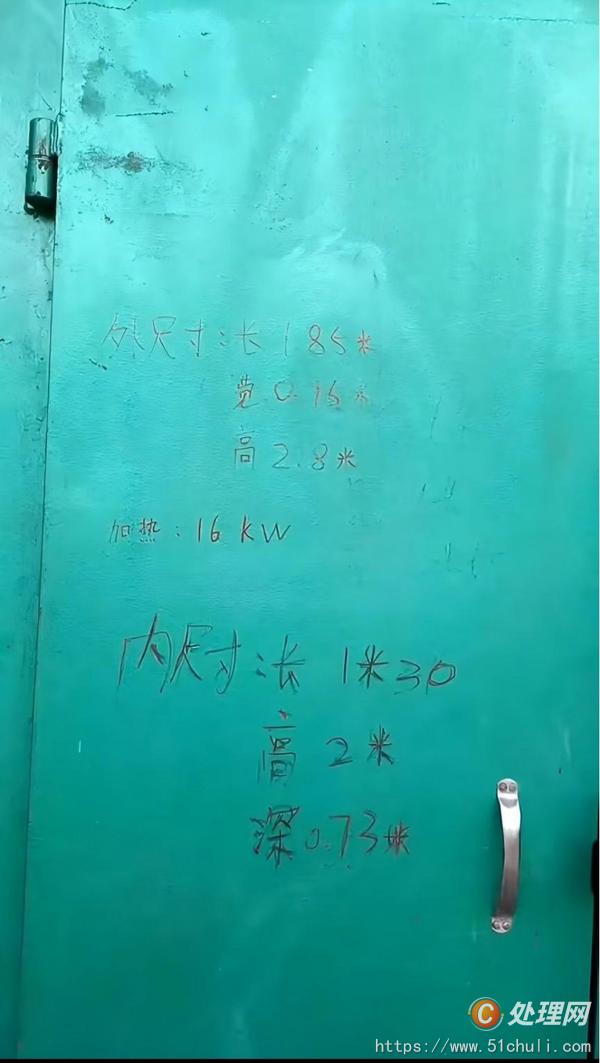 外尺寸:长185米
宽0.95米
高2.8米
加热:16KW
内尺寸:长1米30
高2米
深0.73米
C处理网
https://www.51chuli.com